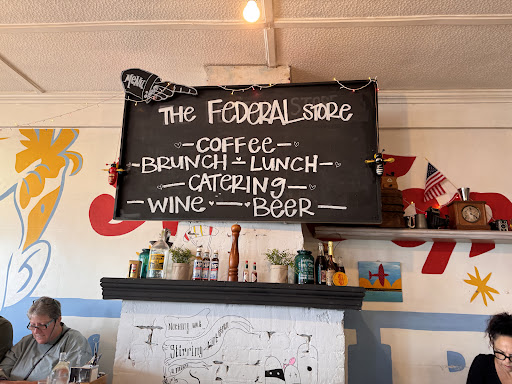 MENU
THE FEDERAL STORE
COFFEE
BRUNCH - LUNCH
CATERING
WINE - BEER